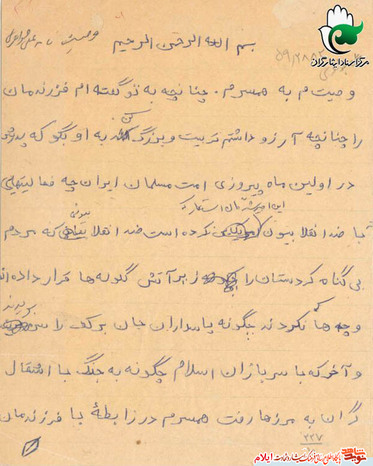 مرکز اسناد ایثارگران
بسم الله الرحمن الرحیم
وصیتم به همسرم. چنانچه به تو گفته ام فرزندمان
را چنانچه آرزو داشتم تربیت و بزرگ کن به او بگو که پدرش
در اولین ماه پیروزی امت مسلمان ایران چه فعالیتهایی
این امر
با ضد انقلابیون کرده است ضد انقلابیونی که مردم
بی گناه کردستان را زیر آتش گلوله ها قرار دادند
و چه ها که نکردند چگونه پاسداران جان برکف را سر بریدند
و آخر که با سربازان اسلام چگونه به جنگ با اشغال
گران به مرزها رفت همسرم در رابطه با فرزندمان
۲۳۷
نوید شاهد
ایلام